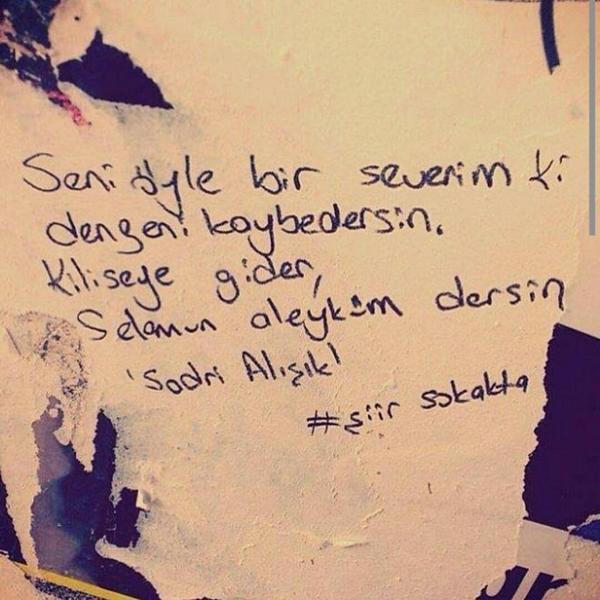 Seni öyle bir severim ki
dengeni kaybedersin.
Kiliseye gider,
Selamun aleyküm dersin
'Sadri Alışık'
#şiir sokakta